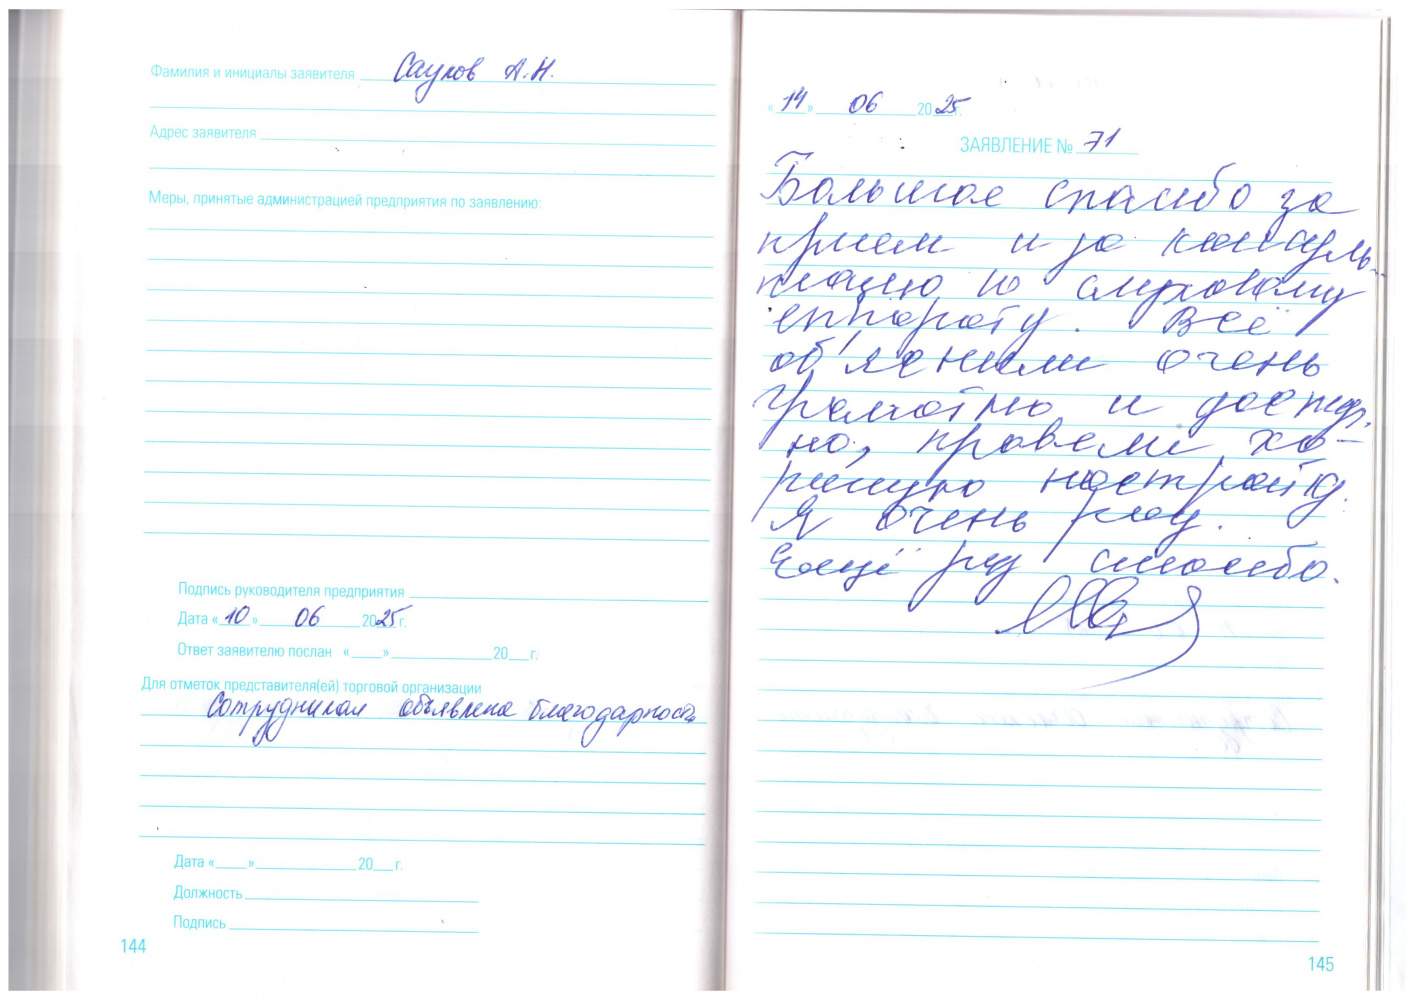 Фамилия и инициалы заявителя Саулов А.Н.
Адрес заявителя
Меры, принятые администрацией предприятия по заявлению:
Подпись руководителя предприятия
Дата «10» 06 2025 г.
Ответ заявителю послан « » 20 г.
Для отметок представителя(ей) торговой организации
Сотрудникам объявлена благодарность
Дата « » 20 г.
Должность
Подпись
144
«14» 06 2025 г.
ЗАЯВЛЕНИЕ № 71
Большое спасибо за
прием и за консуль-
тацию по слуховому
аппарату. Всё
об'яснили очень
грамотно и доступ
но, провели хо-
рошую настройку.
Я очень рад.
Ещё раз спасибо.
145